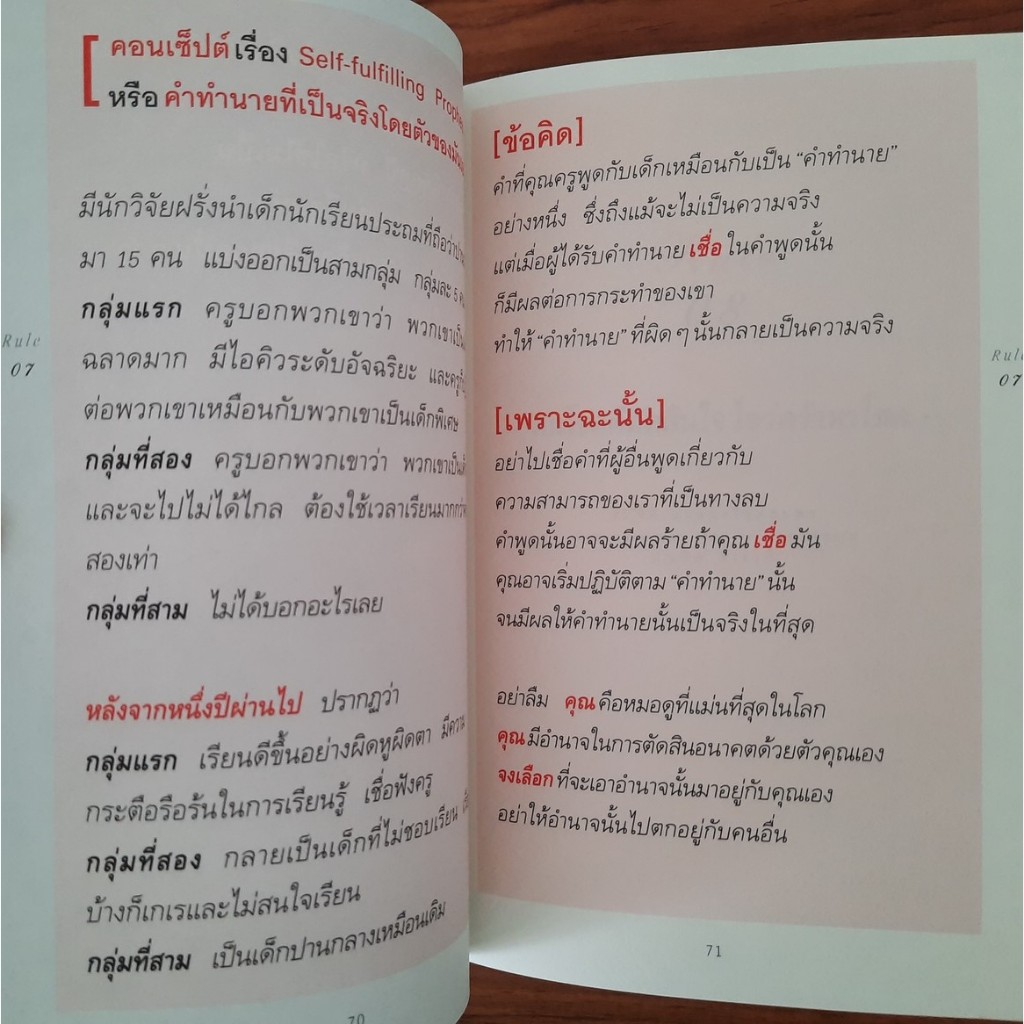 คอนเซ็ปต์เรื่อง Self-fulfilling
หรือ คำทำนายที่เป็นจริงโดยตัวของมัน
มีนักวิจัยฝรั่งนำเด็กนักเรียนประถมที่ถือว่า
มา 15 คน แบ่งออกเป็นสามกลุ่ม กลุ่มละ 5
กลุ่มแรก ครูบอกพวกเขาว่า พวกเขาเป็น
ฉลาดมาก มีไอคิวระดับอัจฉริยะ
ต่อพวกเขาเหมือนกับพวกเขาเป็นเด็กพิเศษ
กลุ่มที่สอง ครูบอกพวกเขาว่า พวกเขาเป็น
และจะไปไม่ได้ไกล ต้องใช้เวลาเรียนมากกว่า
สองเท่า
กลุ่มที่สาม ไม่ได้บอกอะไรเลย
หลังจากหนึ่งปีผ่านไป ปรากฏว่า
กลุ่มแรก เรียนดีขึ้นอย่างผิดหูผิดตา มีความ
กระตือรือร้นในการเรียนรู้ เชื่อฟังครู
กลุ่มที่สอง กลายเป็นเด็กที่ไม่ชอบเรียน
บ้างก็เกเรและไม่สนใจเรียน
กลุ่มที่สาม เป็นเด็กปานกลางเหมือนเดิม
Rule
07
70
[ข้อคิด]
คำที่คุณครูพูดกับเด็กเหมือนกับเป็น “คำทำนาย”
อย่างหนึ่ง ซึ่งถึงแม้จะไม่เป็นความจริง
แต่เมื่อผู้ได้รับคำทำนาย เชื่อ ในคำพูดนั้น
ก็มีผลต่อการกระทำของเขา
ทำให้ “คำทำนาย” ที่ผิด ๆ นั้นกลายเป็นความจริง
[เพราะฉะนั้น]
อย่าไปเชื่อคำที่ผู้อื่นพูดเกี่ยวกับ
ความสามารถของเราที่เป็นทางลบ
คำพูดนั้นอาจจะมีผลร้ายถ้าคุณ เชื่อ มัน
คุณอาจเริ่มปฏิบัติตาม “คำทำนาย” นั้น
จนมีผลให้คำทำนายนั้นเป็นจริงในที่สุด
อย่าลืม คุณ คือหมอดูที่แม่นที่สุดในโลก
คุณ มีอำนาจในการตัดสินอนาคตด้วยตัวคุณเอง
จงเลือก ที่จะเอาอำนาจนั้นมาอยู่กับคุณเอง
อย่าให้อำนาจนั้นไปตกอยู่กับคนอื่น
Rule
07
71